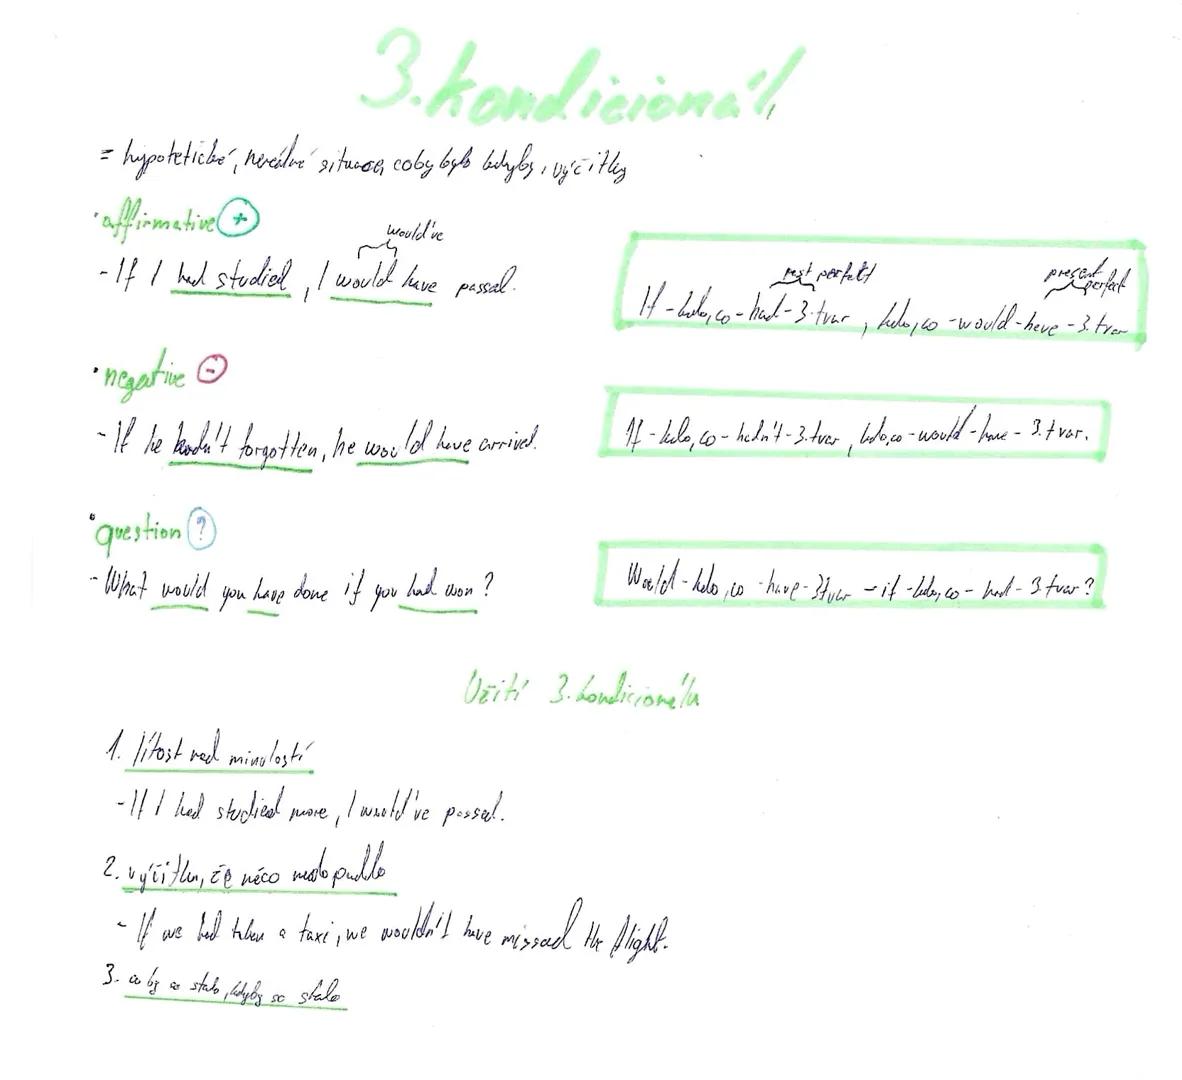 3. kondicionál
= hypotetické, nereálné situace, co by bylo kdyby, výčitky
• affirmative +
would've
- If I had studied, I would have passed.
past perfekt
present perfect
If - kdo, co - had - 3. tvar, kdo, co - would - have - 3. tvar
• negative -
- If he hadn't forgotten, he would have arrived.
If - kdo, co - hadn't - 3. tvar, kdo, co - would - have - 3. tvar.
• question ?
- What would you have done if you had won?
Would - kdo, co - have - 3 tvar - if - kdo, co - had - 3. tvar?
Užití 3. kondicionálu
1. lítost nad minulostí
- If I had studied more, I would've passed.
2. výčitku, že něco nedopadlo
- If we had taken a taxi, we wouldn't have missed the flight.
3. co by se stalo, kdyby se stalo